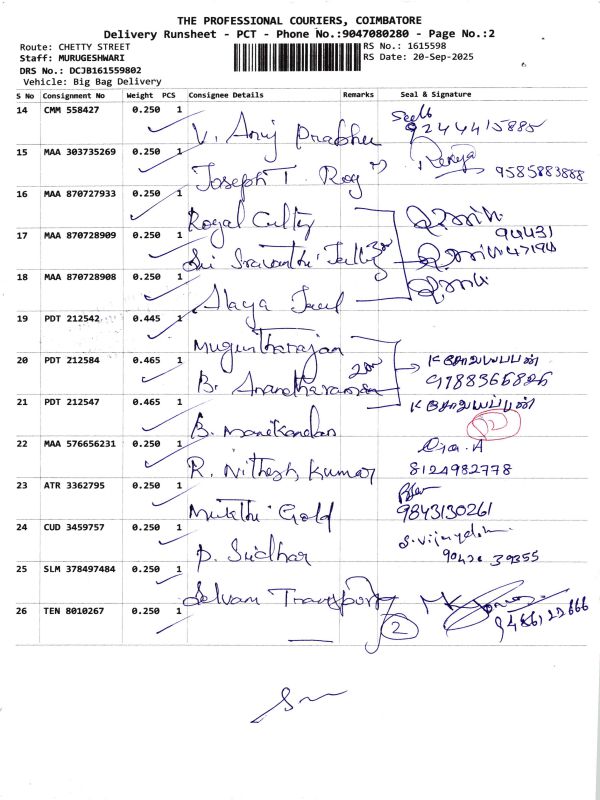 THE PROFESSIONAL COURIERS, COIMBATORE
Delivery Runsheet - PCT - Phone No.:9047080280 - Page No.:2
Route: CHETTY STREET
RS No.: 1615598
Staff: MURUGESHWARI
RS Date: 20-Sep-2025
DRS No.: DCJB161559802
Vehicle: Big Bag Delivery
S No Consignment No Weight PCS Consignee Details Remarks Seal & Signature
14 CMM 558427 0.250 1
V. Anuj Prabhu 9244415885
15 MAA 303735269 0.250 1
Joseph T. Roy Renga 9585883888
16 MAA 870727933 0.250 1
Royal Cultz
17 MAA 870728909 0.250 1
Sri 94431 47194
18 MAA 870728908 0.250 1
19 PDT 212542 0.445 1
Muguntharajan
20 PDT 212584 0.465 1
B. Anantharaman 9788366826
21 PDT 212547 0.465 1
B. Manikandan
22 MAA 576656231 0.250 1
R. Nithesh Kumar 8124982778
23 ATR 3362795 0.250 1
Mukthi Gold 9843130261
24 CUD 3459757 0.250 1
P. Sudhar 39355
25 SLM 378497484 0.250 1
Selvam Transport
26 TEN 8010267 0.250 1
2